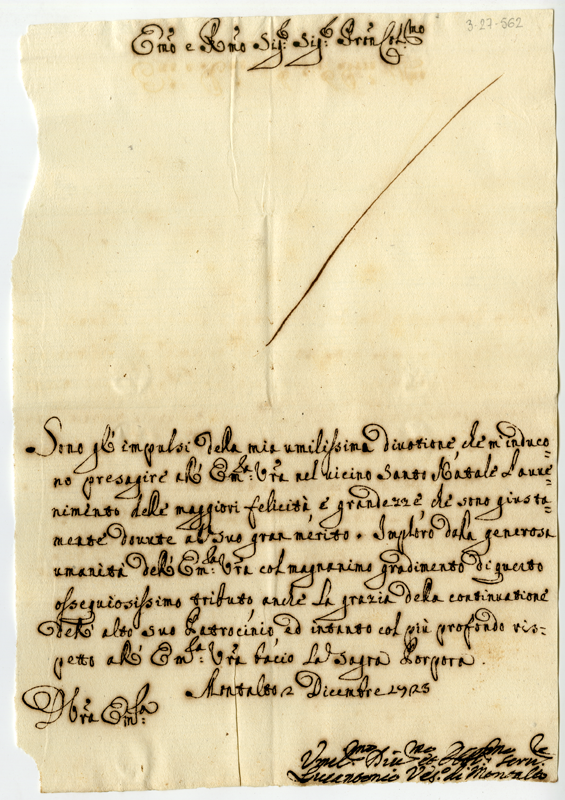 3-27-562
Emo e Rmo Sigr. Sigr. Pron Colmo
Sono gl'impulsi della mia umilissima divotione, che m'induco=
no presagire all' Emza. Vra nel vicino Santo Natale l'avve=
nimento delle maggiori felicità e grandezze che sono giusta=
mente dovute al suo gran merito. Imploro dalla generosa
umanità dell' Emza. Vra col magnanimo gradimento di questo
ossequiosissimo tributo, anche la grazia della continuatione
dell' alto suo Patrocinio, ed intanto col più profondo ris=
petto all' Emza. Vra bacio la Sagra Porpora.
Montalto 2 Dicembre 1725
D Vra Emza.
Umilmo Divmo et Servre
Lucantonio Ves. di Montalto